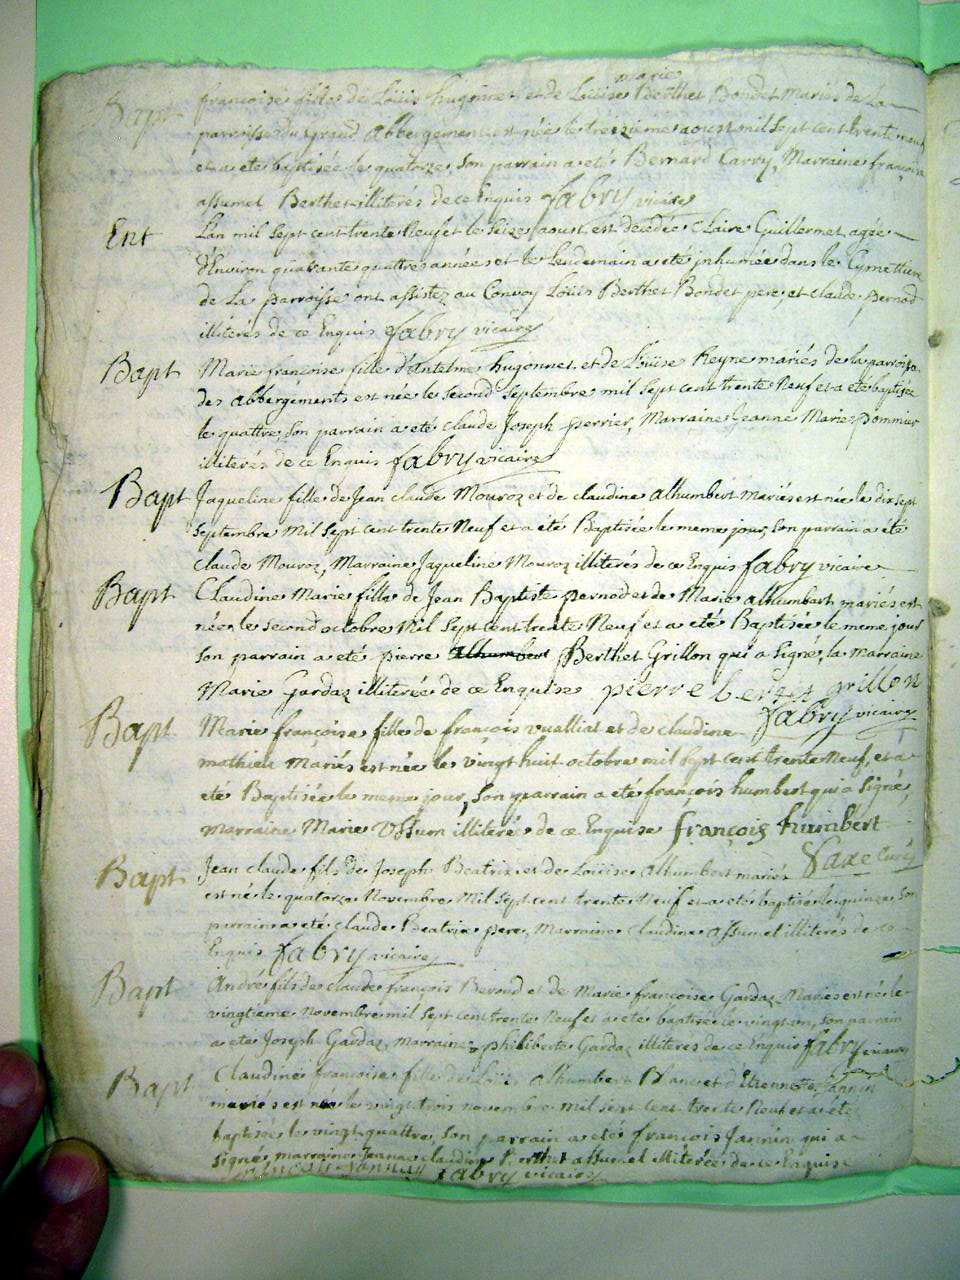 marie
Bapt françoise fille de Loüis hugonnet et de Loüise Berthet Bondet mariés de La
parroisse du Grand Abbergement est née le treizieme aoust mil sept cent trente neuf
et a eté baptisée le quatorze, son parrain a eté Bernard Carry, Marraine françoise
assumel Berthet illiterés de ce Enquis fabry vicaire
Ent L'an mil sept cent trente Neuf et le seize aoust est decedée Claire Guillermet agée
d'Environ quarante quattre années et le Lendemain a eté inhumée dans le Cymettiere
de La parroisse ont assistez au Convoy Loüis Berthet Bondet pere et claude pernod
illiterés de ce Enquis fabry vicaire
Bapt Marie françoise fille d'Antelme hugonnet et de Loüise Reyne mariés de la parroisse
des abbergements est née le second septembre mil sept cent trente Neuf et a eté baptisée
le quattre, son parrain a eté claude Joseph perrier, Marraine Jeanne Marie pommier
illiterés de ce Enquis fabry vicaire
Bapt Jaqueline fille de Jean claude Mouroz et de claudine alhumbert Mariés est née le dix sept
septembre Mil sept cent trente Neuf et a été Baptisée le meme jour, son parrain a eté
Claude Mouroz, Marraine Jaqueline Mouroz illiterés de ce Enquis fabry vicaire
Bapt Claudine Marie fille de Jean Baptiste pernod et de Marie alhumbert mariés est
née le second octobre Mil sept cent trente Neuf et a eté Baptisée le meme jour
son parrain a eté pierre alhumbert Berthet Grillon qui a signé, la marraine
Marie Gardaz illiterée de ce Enquise pierre bertet grillon
fabry vicaire
Bapt Marie françoise fille de françois vualliat et de claudine
mathieu Mariés est née le vingt huit octobre mil sept cent trente Neuf, et a
eté Baptisée le meme jour, son parrain a eté françois humbert qui a signé
marraine Marie illiterée de ce Enquise françois humbert
Curé
Bapt Jean claude fils de Joseph Beatrix et de Loüise alhumbert mariés
est né le quatorze Novembre Mil sept cent trente Neuf et a eté baptisé le quinze, son
parrain a eté claude Beatrix pere, Marraine claudine assumel illiterés de ce
Enquis fabry vicaire
Bapt André fils de claude françois Beroud et de Marie françoise Gardaz Mariés est né le
vingtieme novembre mil sept cent trente Neuf et a eté baptisé le vingt un, son parrain
a eté Joseph Gardaz, marraine philiberte Gardaz illiterés de ce Enquis fabry vicaire
Bapt Claudine françoise fille de Loüis alhumbert Blanc et d'Etiennette Jannin
mariés est née le vingt trois novembre mil sept cent trente Neuf et a eté
baptisée le vingt quattre, son parrain a eté françois Jannin qui a
signé, marraine Jeanne claudine Berthet assumel illiterée de ce Enquise
françois jannin fabry vicaire